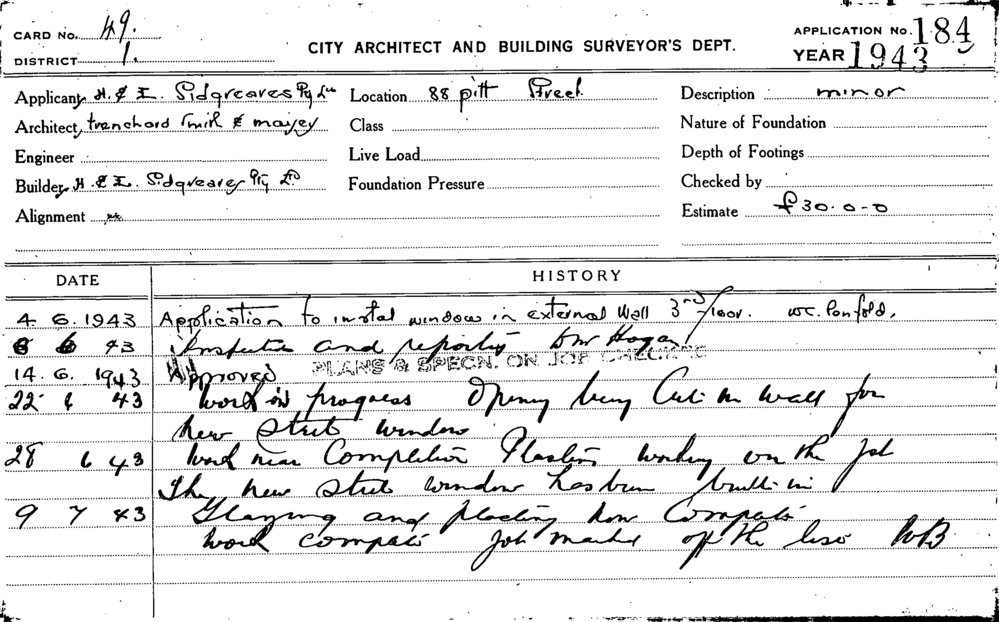 CARD No. 49.
DISTRICT 1.
CITY ARCHITECT AND BUILDING SURVEYOR'S DEPT.
APPLICATION No. 184
YEAR 1943
Applicant H. & I. Sidgreaves Pty Ltd
Location 88 pitt Street
Description minor
Architect trenchard Smith & maisey
Class
Nature of Foundation
Engineer
Live Load
Depth of Footings
Builder H. & I. Sidgreaves Pty Ltd
Foundation Pressure
Checked by
Alignment
Estimate £30.0-0
DATE HISTORY
4. 6. 1943 Application to instal window in external Wall 3rd floor. WC. Penfold.
8 6 43 Inspected and reported Hogan
PLANS & SPECN. ON JOB CHECKED
14. 6. 1943 Approved
22 6 43 Work in progress Opening being Cut in wall for
new steel window
28 6 43 Work near Completion Plasterers working on the Job
The new steel window has been built in
9 7 43 Glazing and plastering now Complete
Work complete Job marked off the list